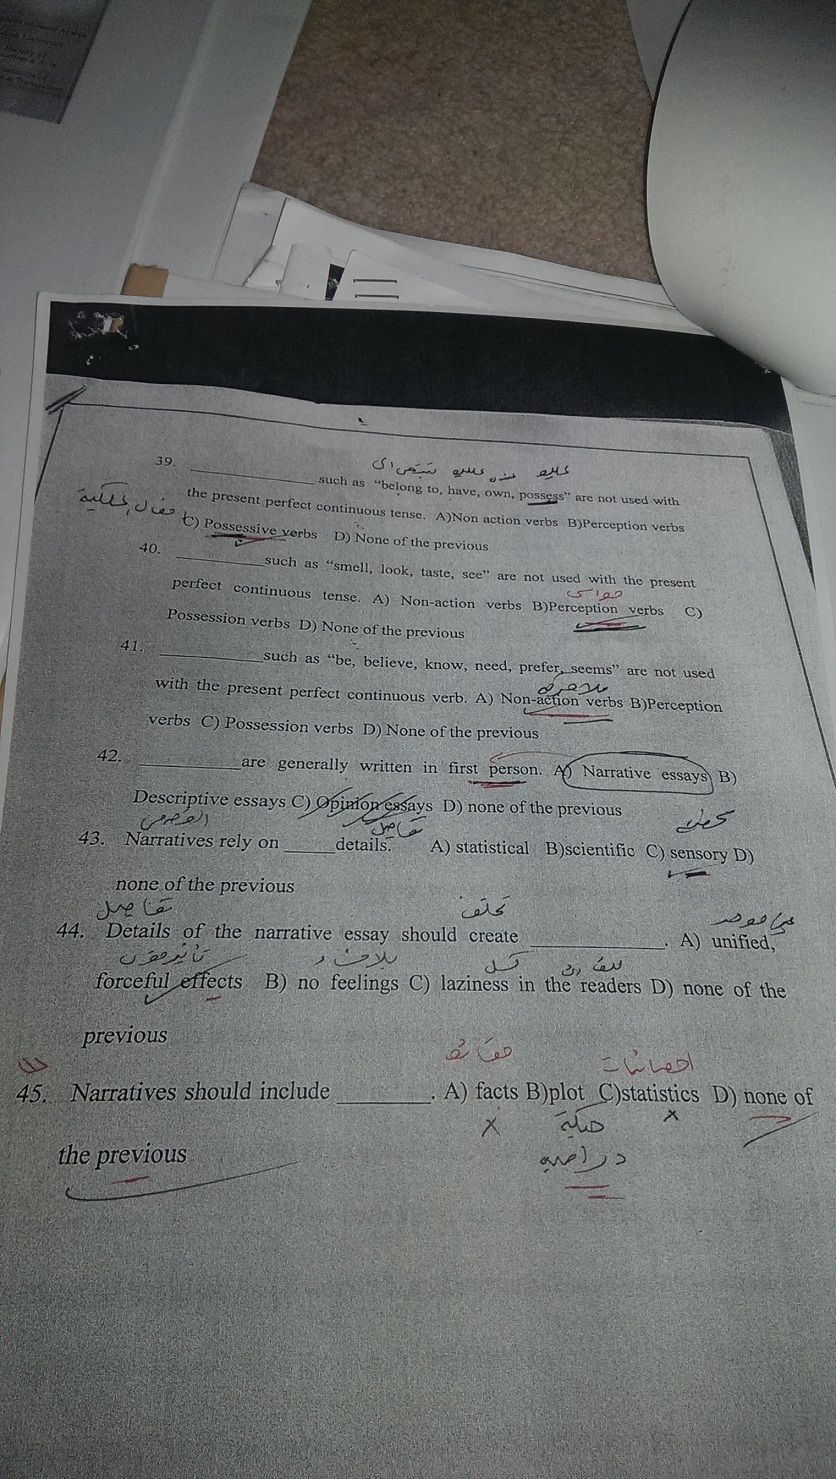 39. ____________ such as “belong to, have, own, possess” are not used with
the present perfect continuous tense. A)Non action verbs B)Perception verbs
C) Possessive verbs D) None of the previous
40. ____________such as “smell, look, taste, see” are not used with the present
حواس
perfect continuous tense. A) Non-action verbs B)Perception verbs C)
Possession verbs D) None of the previous
41. ____________such as “be, believe, know, need, prefer, seems” are not used
with the present perfect continuous verb. A) Non-action verbs B)Perception
verbs C) Possession verbs D) None of the previous
42. ____________are generally written in first person. A) Narrative essays B)
Descriptive essays C) Opinion essays D) none of the previous
تفاصيل
43. Narratives rely on _____details. A) statistical B)scientific C) sensory D)
none of the previous
تفاصيل
44. Details of the narrative essay should create ____________. A) unified,
كسل
forceful effects B) no feelings C) laziness in the readers D) none of the
previous
حقائق احصائيات
45. Narratives should include ________. A) facts B)plot C)statistics D) none of
x حبكة x
the previous